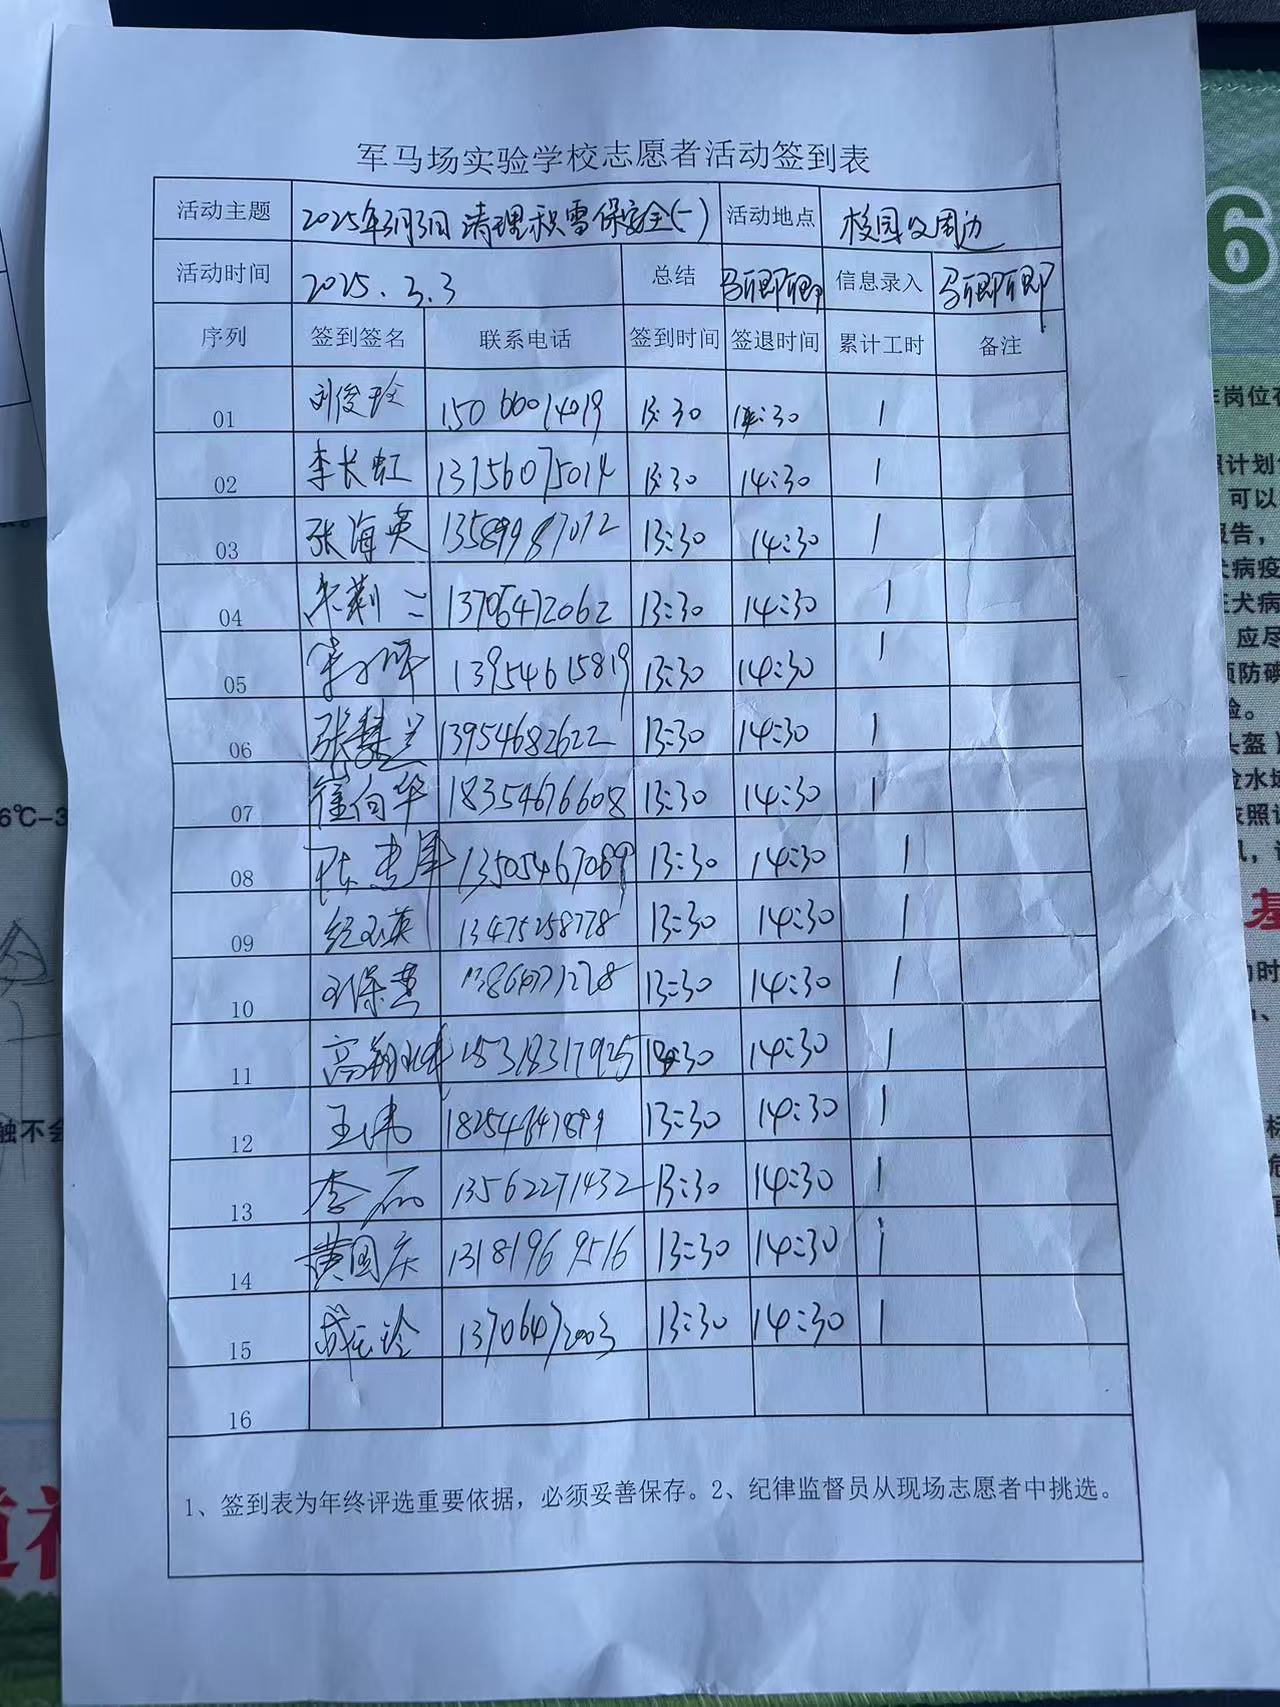 军马场实验学校志愿者活动签到表
活动主题 2025年3月3日清理积雪保安全(一) 活动地点 校园及周边
活动时间 2025.3.3 总结 马丽丽 信息录入 马丽丽
序列 签到签名 联系电话 签到时间 签退时间 累计工时 备注
01 刘俊玲 15066014019 13:30 14:30 1
02 李长虹 13756075014 13:30 14:30 1
03 张海英 13589987012 13:30 14:30 1
04 13706472062 13:30 14:30 1
05 13954615819 13:30 14:30 1
06 张慧兰 13954682622 13:30 14:30 1
07 崔向华 18354676608 13:30 14:30 1
08 13505467089 13:30 14:30 1
09 纪玉英 13475258778 13:30 14:30 1
10 13:30 14:30 1
11 15318317925 13:30 14:30 1
12 王伟 18254647899 13:30 14:30 1
13 李磊 13562271432 13:30 14:30 1
14 黄国庆 13181969516 13:30 14:30 1
15 13706472003 13:30 14:30 1
16
1、签到表为年终评选重要依据，必须妥善保存。2、纪律监督员从现场志愿者中挑选。
6
6℃-3
触不会